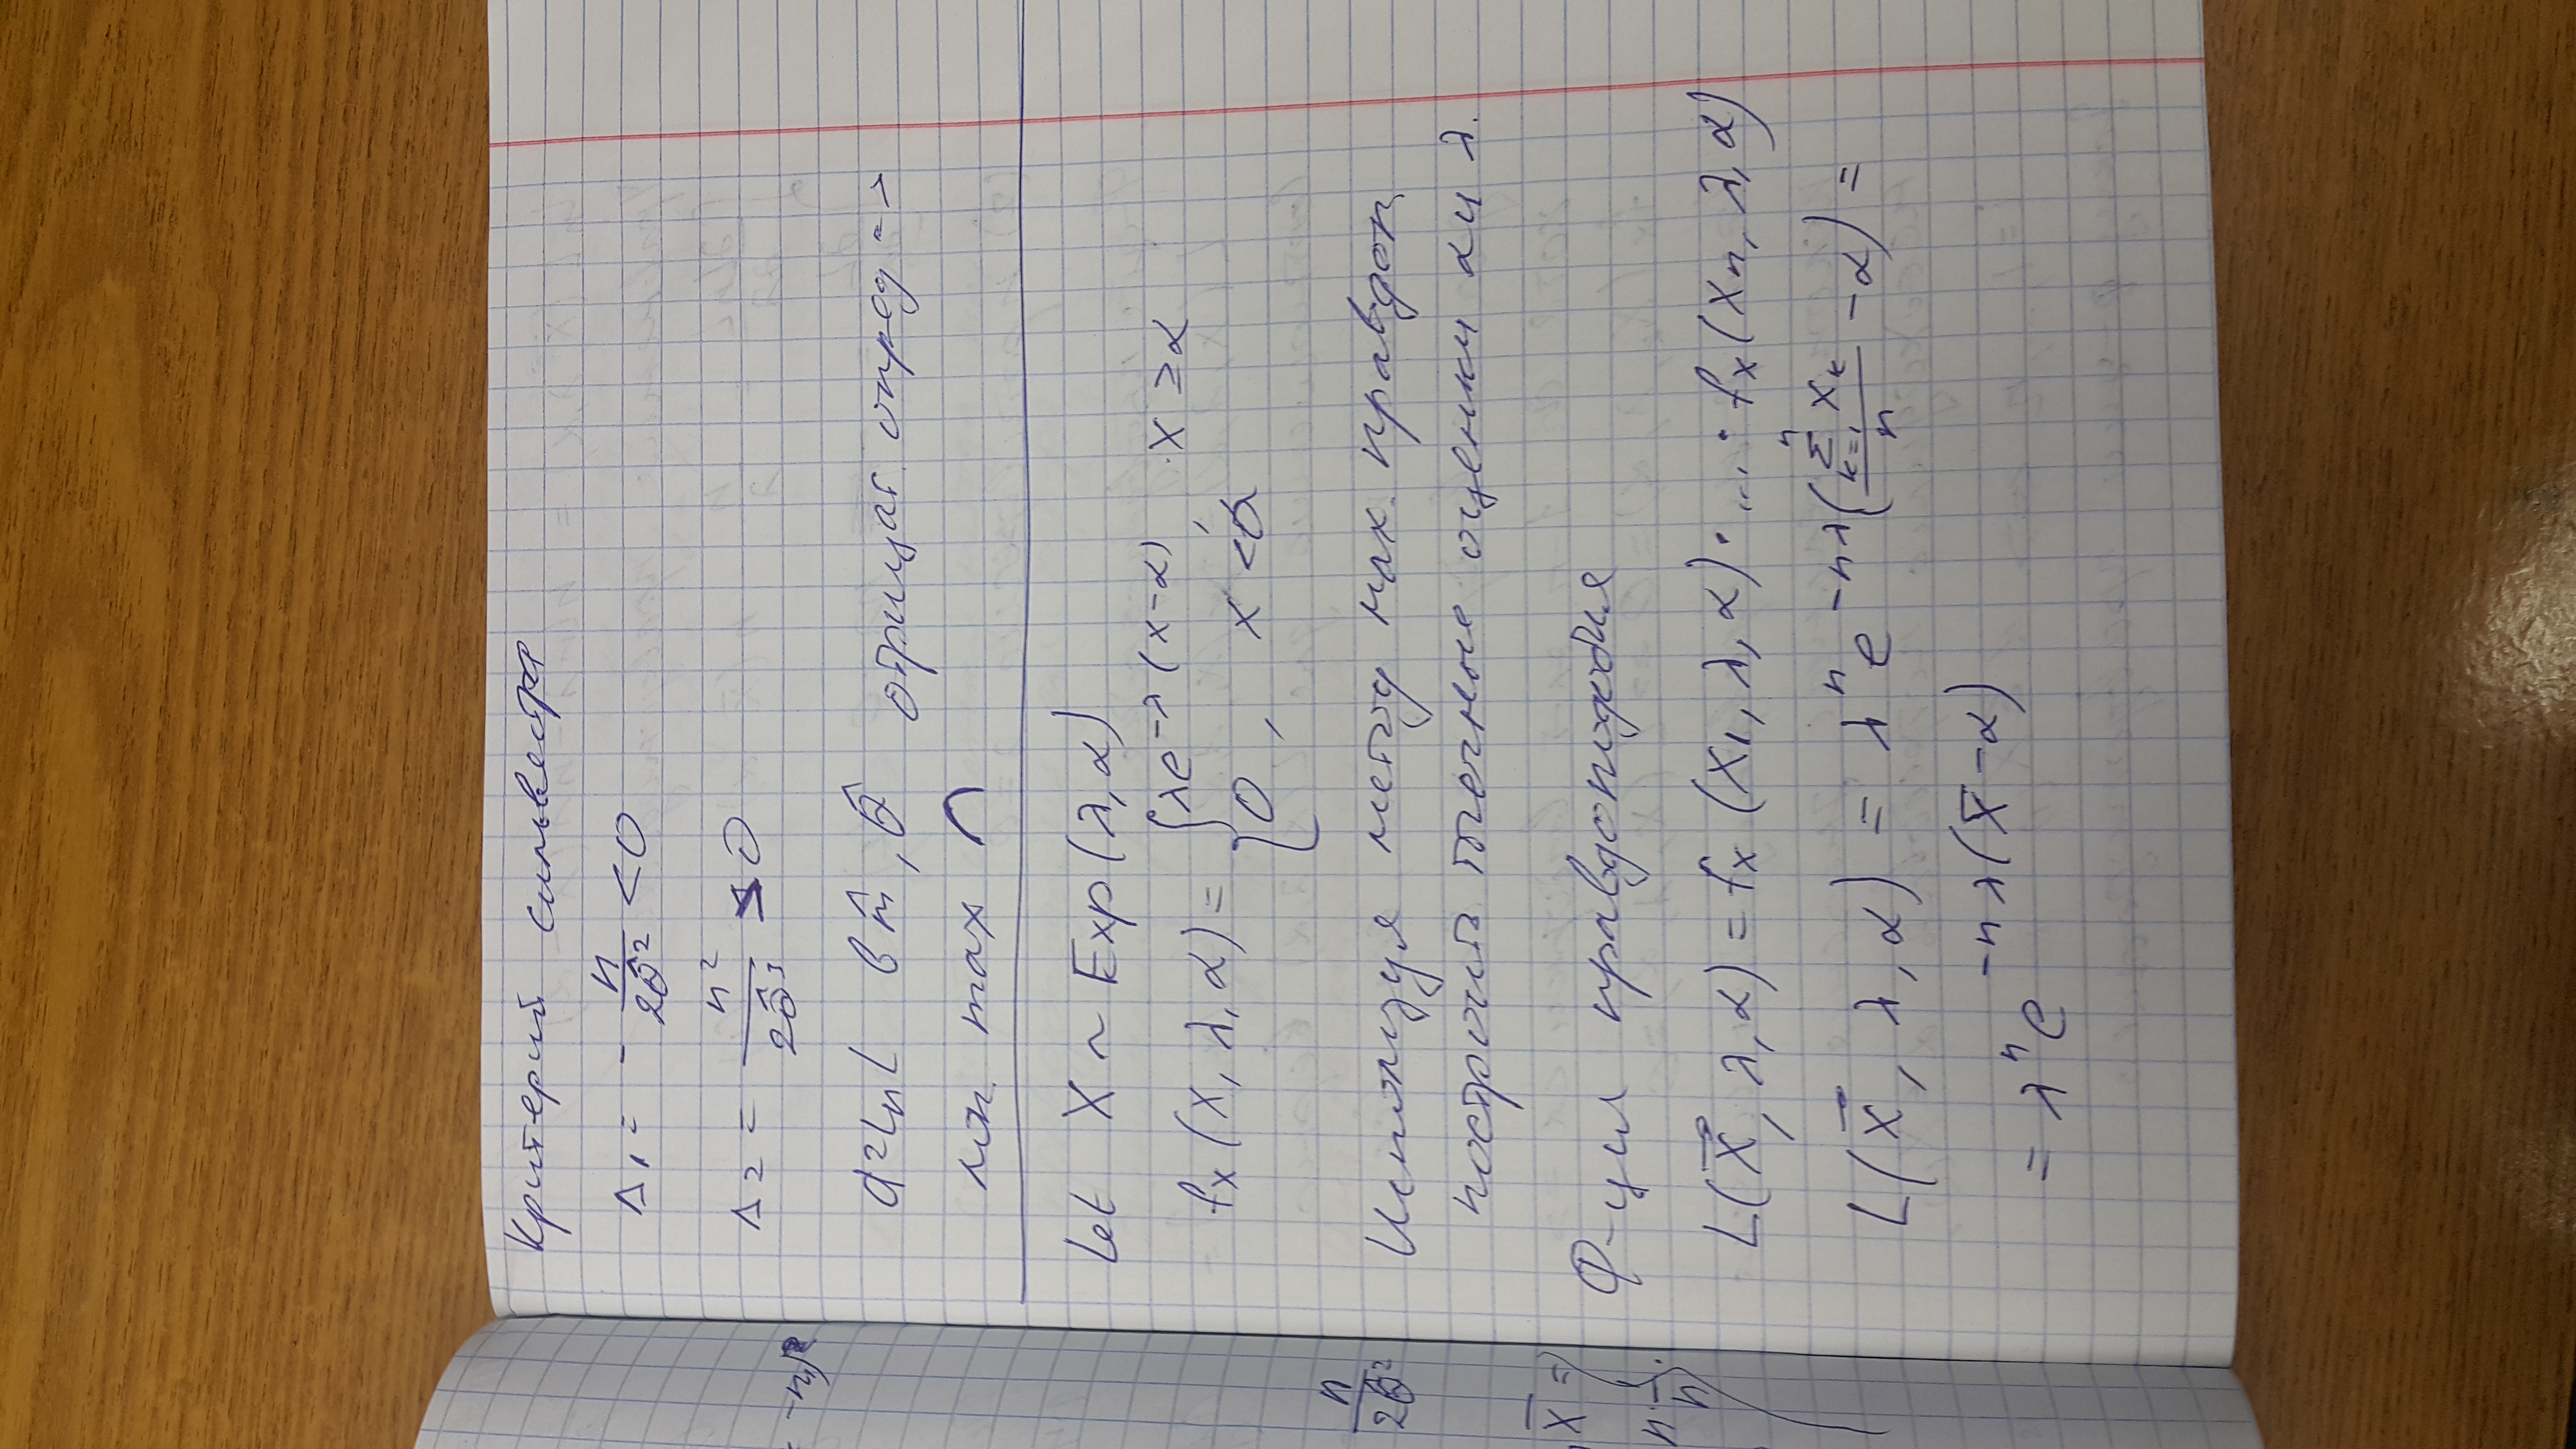 Критерий сильвестра
Δ₁ = - n / 2θ̂² < 0
Δ₂ = n² / 2θ̂³ > 0
d²LnL в m̂, θ̂ отрицат. опред =>
лок. max ∩
Let X ~ Exp(λ, α)
fₓ(x, λ, α) = { λe^{-λ(x-α)}, x ≥ α
0, x < α
Используя метод мах. правдоп.
построить точечные оценки α и λ.
Ф-ция правдоподобия
L(X⃗, λ, α) = fₓ(x₁, λ, α) · ... · fₓ(xₙ, λ, α)
L(X⃗, λ, α) = λⁿ e^{-nλ(Σ_{k=1}^{n} x_k / n - α)} =
= λⁿ e^{-nλ(x̄ - α)}
n / 2θ̂²
x̄ =
n · 1/n ·